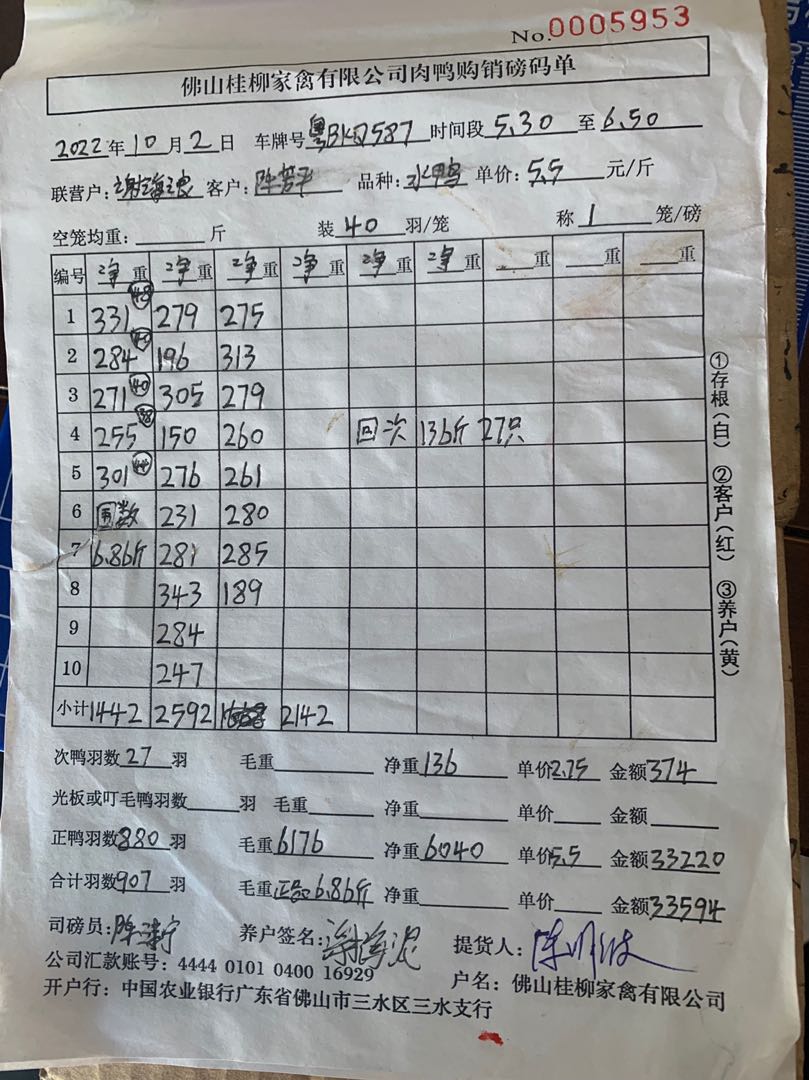 No.0005953
佛山桂柳家禽有限公司肉鸭购销磅码单
2022年10月2日 车牌号粤BKQ587 时间段5.30至6.50
联营户: 谢海浪 客户: 陈芳平 品种: 水鸭 单价: 5.5 元/斤
空笼均重: 斤 装40羽/笼 称1笼/磅
编号 净重 净重 净重 净重 净重 净重 重 重 重
1 331 279 275
2 284 196 313
3 271 40 305 279
4 255 38 150 260 回次 136斤 27只
5 301 44 276 261
6 回数 231 280
7 6.86斤 281 285
8 343 189
9 284
10 247
小计 1442 2592 2142
次鸭羽数27羽 毛重 净重136 单价2.75 金额374
光板或叮毛鸭羽数 羽 毛重 净重 单价 金额
正鸭羽数880羽 毛重6176 净重6040 单价5.5 金额33220
合计羽数907羽 毛重正品6.86斤 净重 单价 金额33594
司磅员: 养户签名: 提货人:
公司汇款账号: 4444 0101 0400 16929 户名: 佛山桂柳家禽有限公司
开户行: 中国农业银行广东省佛山市三水区三水支行
①存根(白) ②客户(红) ③养户(黄)